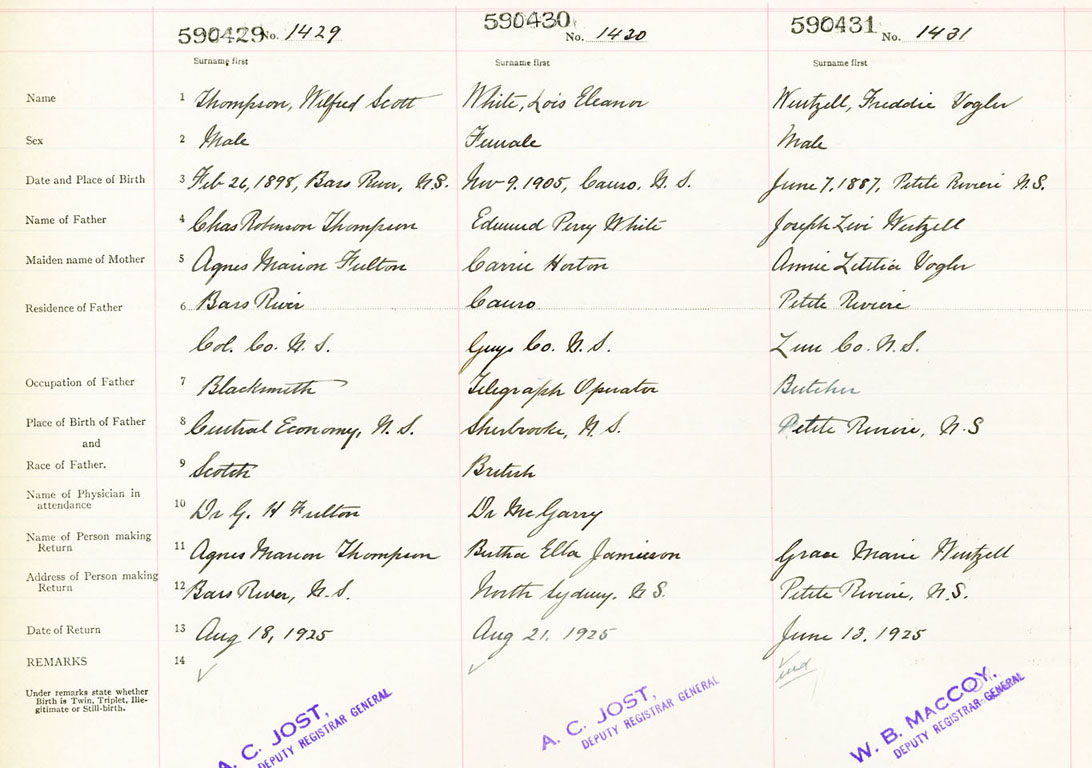 590429 No. 1429 590430 No. 1430 590431 No. 1431
Surname first Surname first Surname first
Name 1 Thompson, Wilfred Scott White, Lois Eleanor Wentzell, Freddie Vogler
Sex 2 Male Female Male
Date and Place of Birth 3 Feb 26, 1898, Bass River, N.S. Nov 9. 1905, Canso, N.S. June 7, 1887, Petite Riviere N.S.
Name of Father 4 Chas Robinson Thompson Edmund Percy White Joseph Levi Wentzell
Maiden name of Mother 5 Agnes Marion Fulton Carrie Horton Annie Letitia Vogler
Residence of Father 6 Bass River Canso Petite Riviere
Col. Co. N.S. Guys Co. N.S. Lun Co. N.S.
Occupation of Father 7 Blacksmith Telegraph Operator Butcher
Place of Birth of Father 8 Central Economy, N.S. Sherbrooke, N.S. Petite Riviere, N.S
and
Race of Father. 9 Scotch British
Name of Physician in
attendance 10 Dr G. H Fulton Dr McGarry
Name of Person making
Return 11 Agnes Marion Thompson Bertha Ella Jamieson Grace Marie Wentzell
Address of Person making
Return 12 Bass River, N.S. North Sydney, N.S. Petite Riviere, N.S.
Date of Return 13 Aug 18, 1925 Aug 21. 1925 June 13. 1925
REMARKS 14
Under remarks state whether
Birth is Twin, Triplet, Ille-
gitimate or Still-birth.
A. C. JOST, A. C. JOST, W. B. MACCOY,
DEPUTY REGISTRAR GENERAL DEPUTY REGISTRAR GENERAL DEPUTY REGISTRAR GENERAL